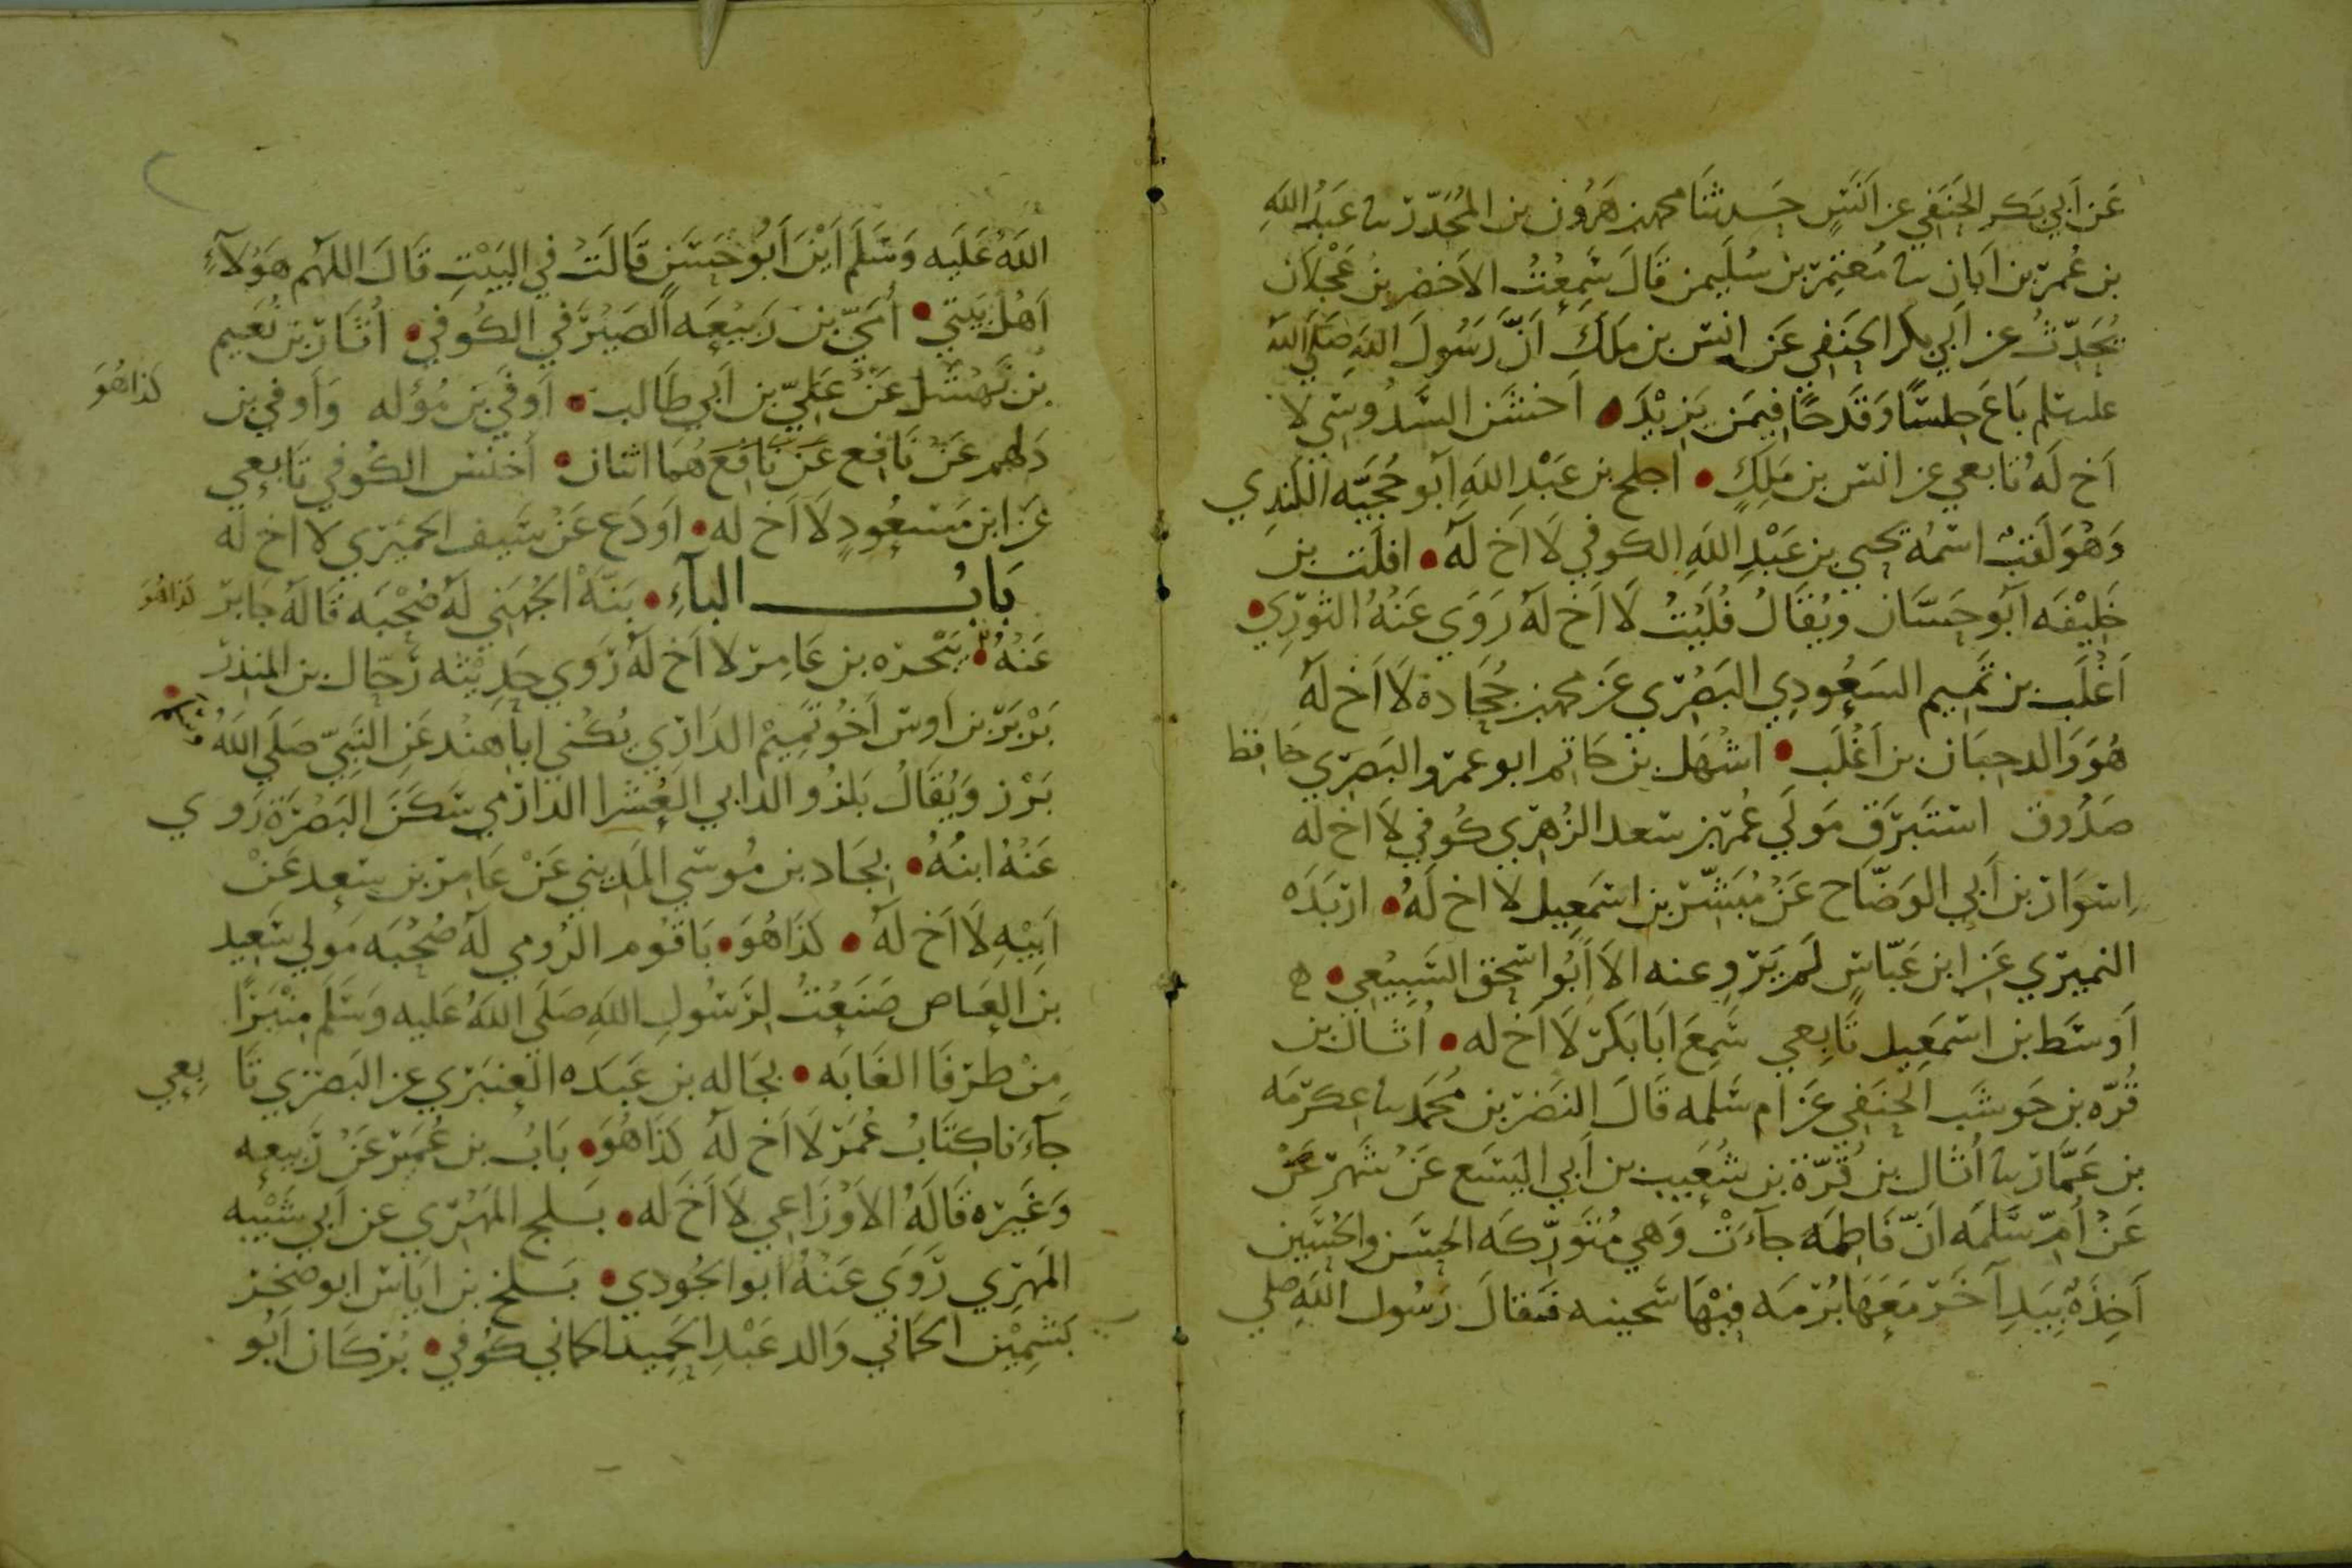 عَن أَبي بَكر الحَنَفي عن أَنَسٍ حَدثنَا محمد بن هَرُون بن المُجَدّر ثنا عَبدُ اللهِ
بن عُمَر بن أَبان ثنا مُعتَمِر بن سُلَيمن قَالَ سَمِعْتُ الأخضَر بنَ عَجْلان
يُحَدّثُ عن أَبي بكر الحَنَفي عَن انس بن مَلِكَ أَنَّ رَسُولَ اللهِ صَلَّى اللهُ
عليه سلم بَاعَ حِلسًا وَقَدحًا فيمَن يَزِيْدَ • أخشَن السَّدُوسي لا
أخ لَهُ تابعي عن انس بن مَلِكٍ • اجلح بن عَبْدِ اللهِ أبو حُجَيَّه الكندِي
وَهُوَ لَقَبٌ اسمُهُ يحيى بن عَبْدِ اللهِ الكوفي لَا أَخ لَهُ • افلَت بن
خَلِيْفَه أبو حَسَّان ويُقَالُ فُلَيْتُ لَا أَخ لَهُ رَوَى عَنْهُ الثَورِي •
أَغْلَب بن تَمِيم السَعُودِي البَصْرِي عَن محمد بن جُحَادة لَا أَخ لَهُ
هُوَ وَالد حِبَان بن أَغْلَب • اشْهَل بن حَاتم ابو عمرو البَصَري حافظ
صَدُوق استَبرَق مَولَى عُمَر بن سعد الزُهرِي كُوفي لَا أخ لَه
اِسوَار بن أَبي الوَضّاح عَنْ مُبَشّر بن اسمَعِيل لَا اخ لَهُ • اربَدَه
النميري عَن ابن عَبّاسٍ لَم يَروِ عنه الا أَبُو اسحق السَبِيْعِي •
أَوسَط بن اسمَعِيل تَابِعِي سَمِعَ أبَا بَكر لَا أَخ له • أُثال بن
قُرّه بن حَوشَب الحنَفِي عَن ام سَلمه قَالَ النَضر بن مُحَمَد ثنا عكرمَه
بن عَمَّار ثنا أُثَال بن قُرّة بن شُعَيب بن أَبي اليَسَع عَن شَهر عَن
عَنْ أمّ سَلمَه أَنّ فَاطِمَه جآءَتْ وَهي مُتَوَرّكَه الحسَن والحُسَين
آخِذَةٌ بِيَدِ آخَر مَعَهَا بُرمَه فِيْهَا سَخينه فَقالَ رَسُول اللهِ صلي
اللهُ عَلَيه وَسَلَّمَ اَيْنَ أَبُو حَسَنٍ قَالَتْ في البَيْتِ قَالَ اللهُم هَوُلآءِ
أَهْلُ بَيتي • أُمَيّ بن رَبيْعَه الصَيْرَفي الكُوفي • أُثَار بن نُعَيم
بن نَهْشَل عَنْ عَلِيّ بن أَبي طَالب • أَوفَى بن مُؤله وَأوفى بن
كَذا هُوَ
دَلهم عَنْ نَافِع عَن نَافِعَ هُمَا اثنان • أخنَس الكُوفي تَابِعي
عَن ابن مَسعُودٍ لَا أَخ له • أودَع عَنْ سَيف الحميري لا اخ له
بَابُ الباءِ • بَنّهْ الجُهَني لَهُ صُحْبَه قَالَهُ جَابر
كذا هُوَ
عَنْهُ • بَيْحرَه بن عَامِر لَا أَخ لَهُ رَوى حَدِيْثه رَحّال بن المنذر
بَرْبَر بن أوس أَخُو تَمِيْم الدَاري يُكْنى ابا هِنْد عَنِ النَبِيّ صَلَى اللهُ
بَرْز وَيُقَالُ بَلزُ والد ابي العُشَرا الدارِمي سَكَنَ البَصْرَة رَوى
عَنْهُ ابنُهُ • بِجَاد بن مُوسي المَدِيني عَنْ عَامِر بن سَعِد عَنْ
أَبِيْهِ لَا أَخ لَهُ • كَذَا هُوَ • بَاقُوم الرُومي لَهُ صُحْبَه مَولى سَعِيد
بن العَاص صَنَعْتُ لِرَسُولِ اللهِ صَلَى اللهُ عَليه وَسَلَّمَ مِنْبَرًا
مِنْ طَرفَا الغَابَه • بجَاله بن عَبَدَه العنبَري عن البَصْرِي تَا بِعِي
جآءَنا كِتَابُ عُمَر لَا أَخ لَهُ كَذَا هُوَ • بَابُ بن عُمَير عَنْ رَبِيعه
وَغَيره قَالَهُ الأوزَاعي لَا أَخَ لَه • بَسلج المَهرِي عن أَبي شَيْبَه
المَهرِي رَوَى عَنْهُ أبو الجُودي • بَسلخ بن ايَاس ابو صخر
بَشْمِيْن الحمَاني وَالد عَبْدِ الحَمِيد الحماني كُوفي • بُركَان أَبُو